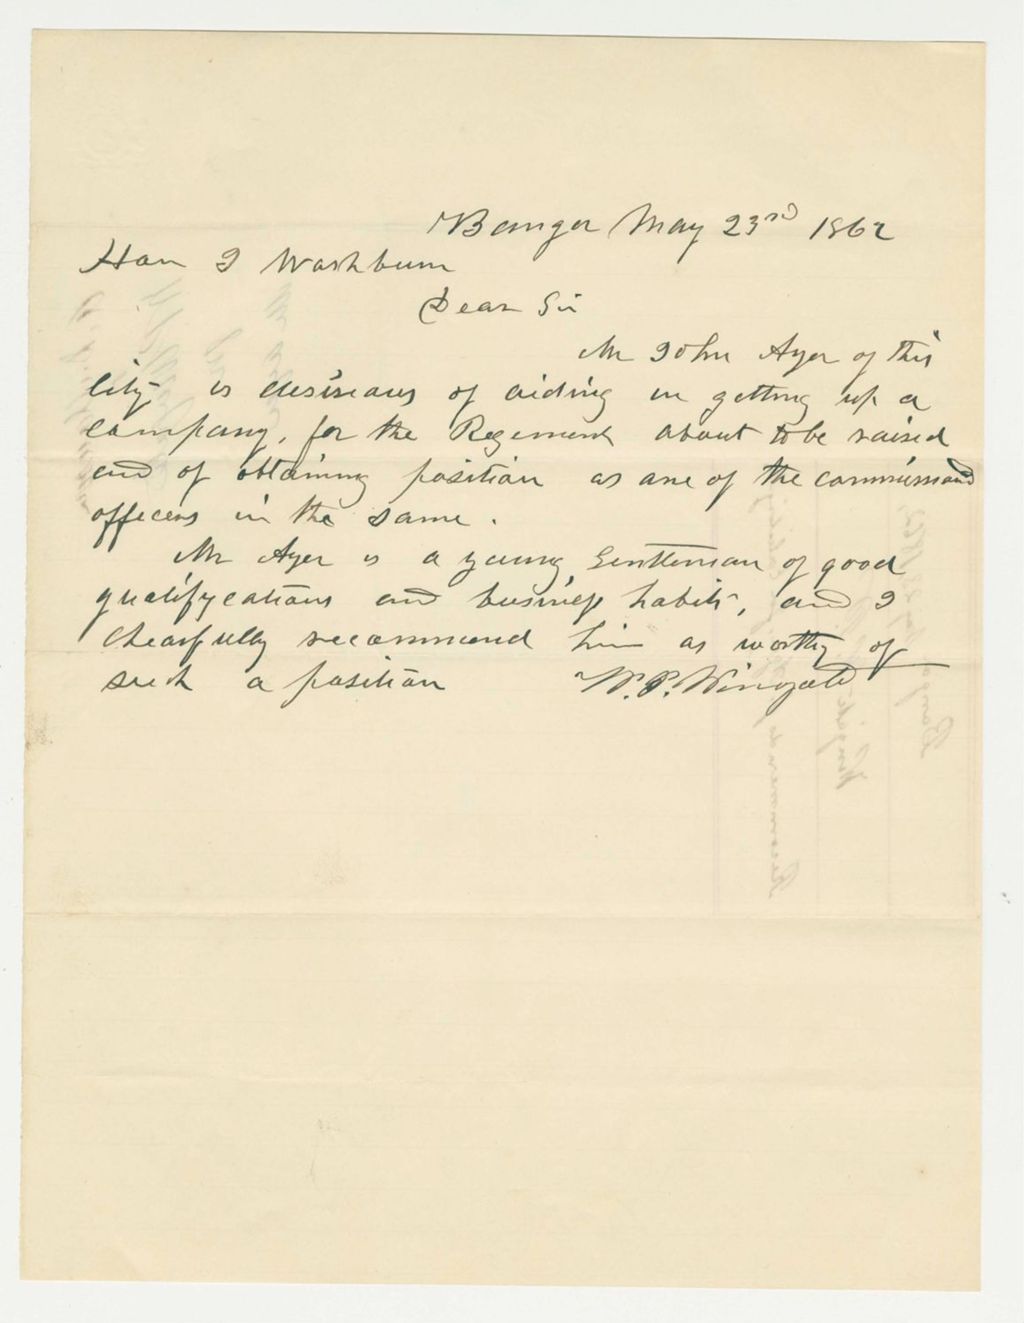 Bangor May 23rd 1862
Hon I Washburn
Dear Sir
Mr John Ayer of this
City is desirious of aiding in getting up a
Company, for the Regement about to be raised
and of obtaining position as one of the commissiond
officers in the same.
Mr Ayer is a young Gentleman of good
qualifycations and business habits, and I
Chearfully recommend him as worthy of
such a position
W. P. Wingate